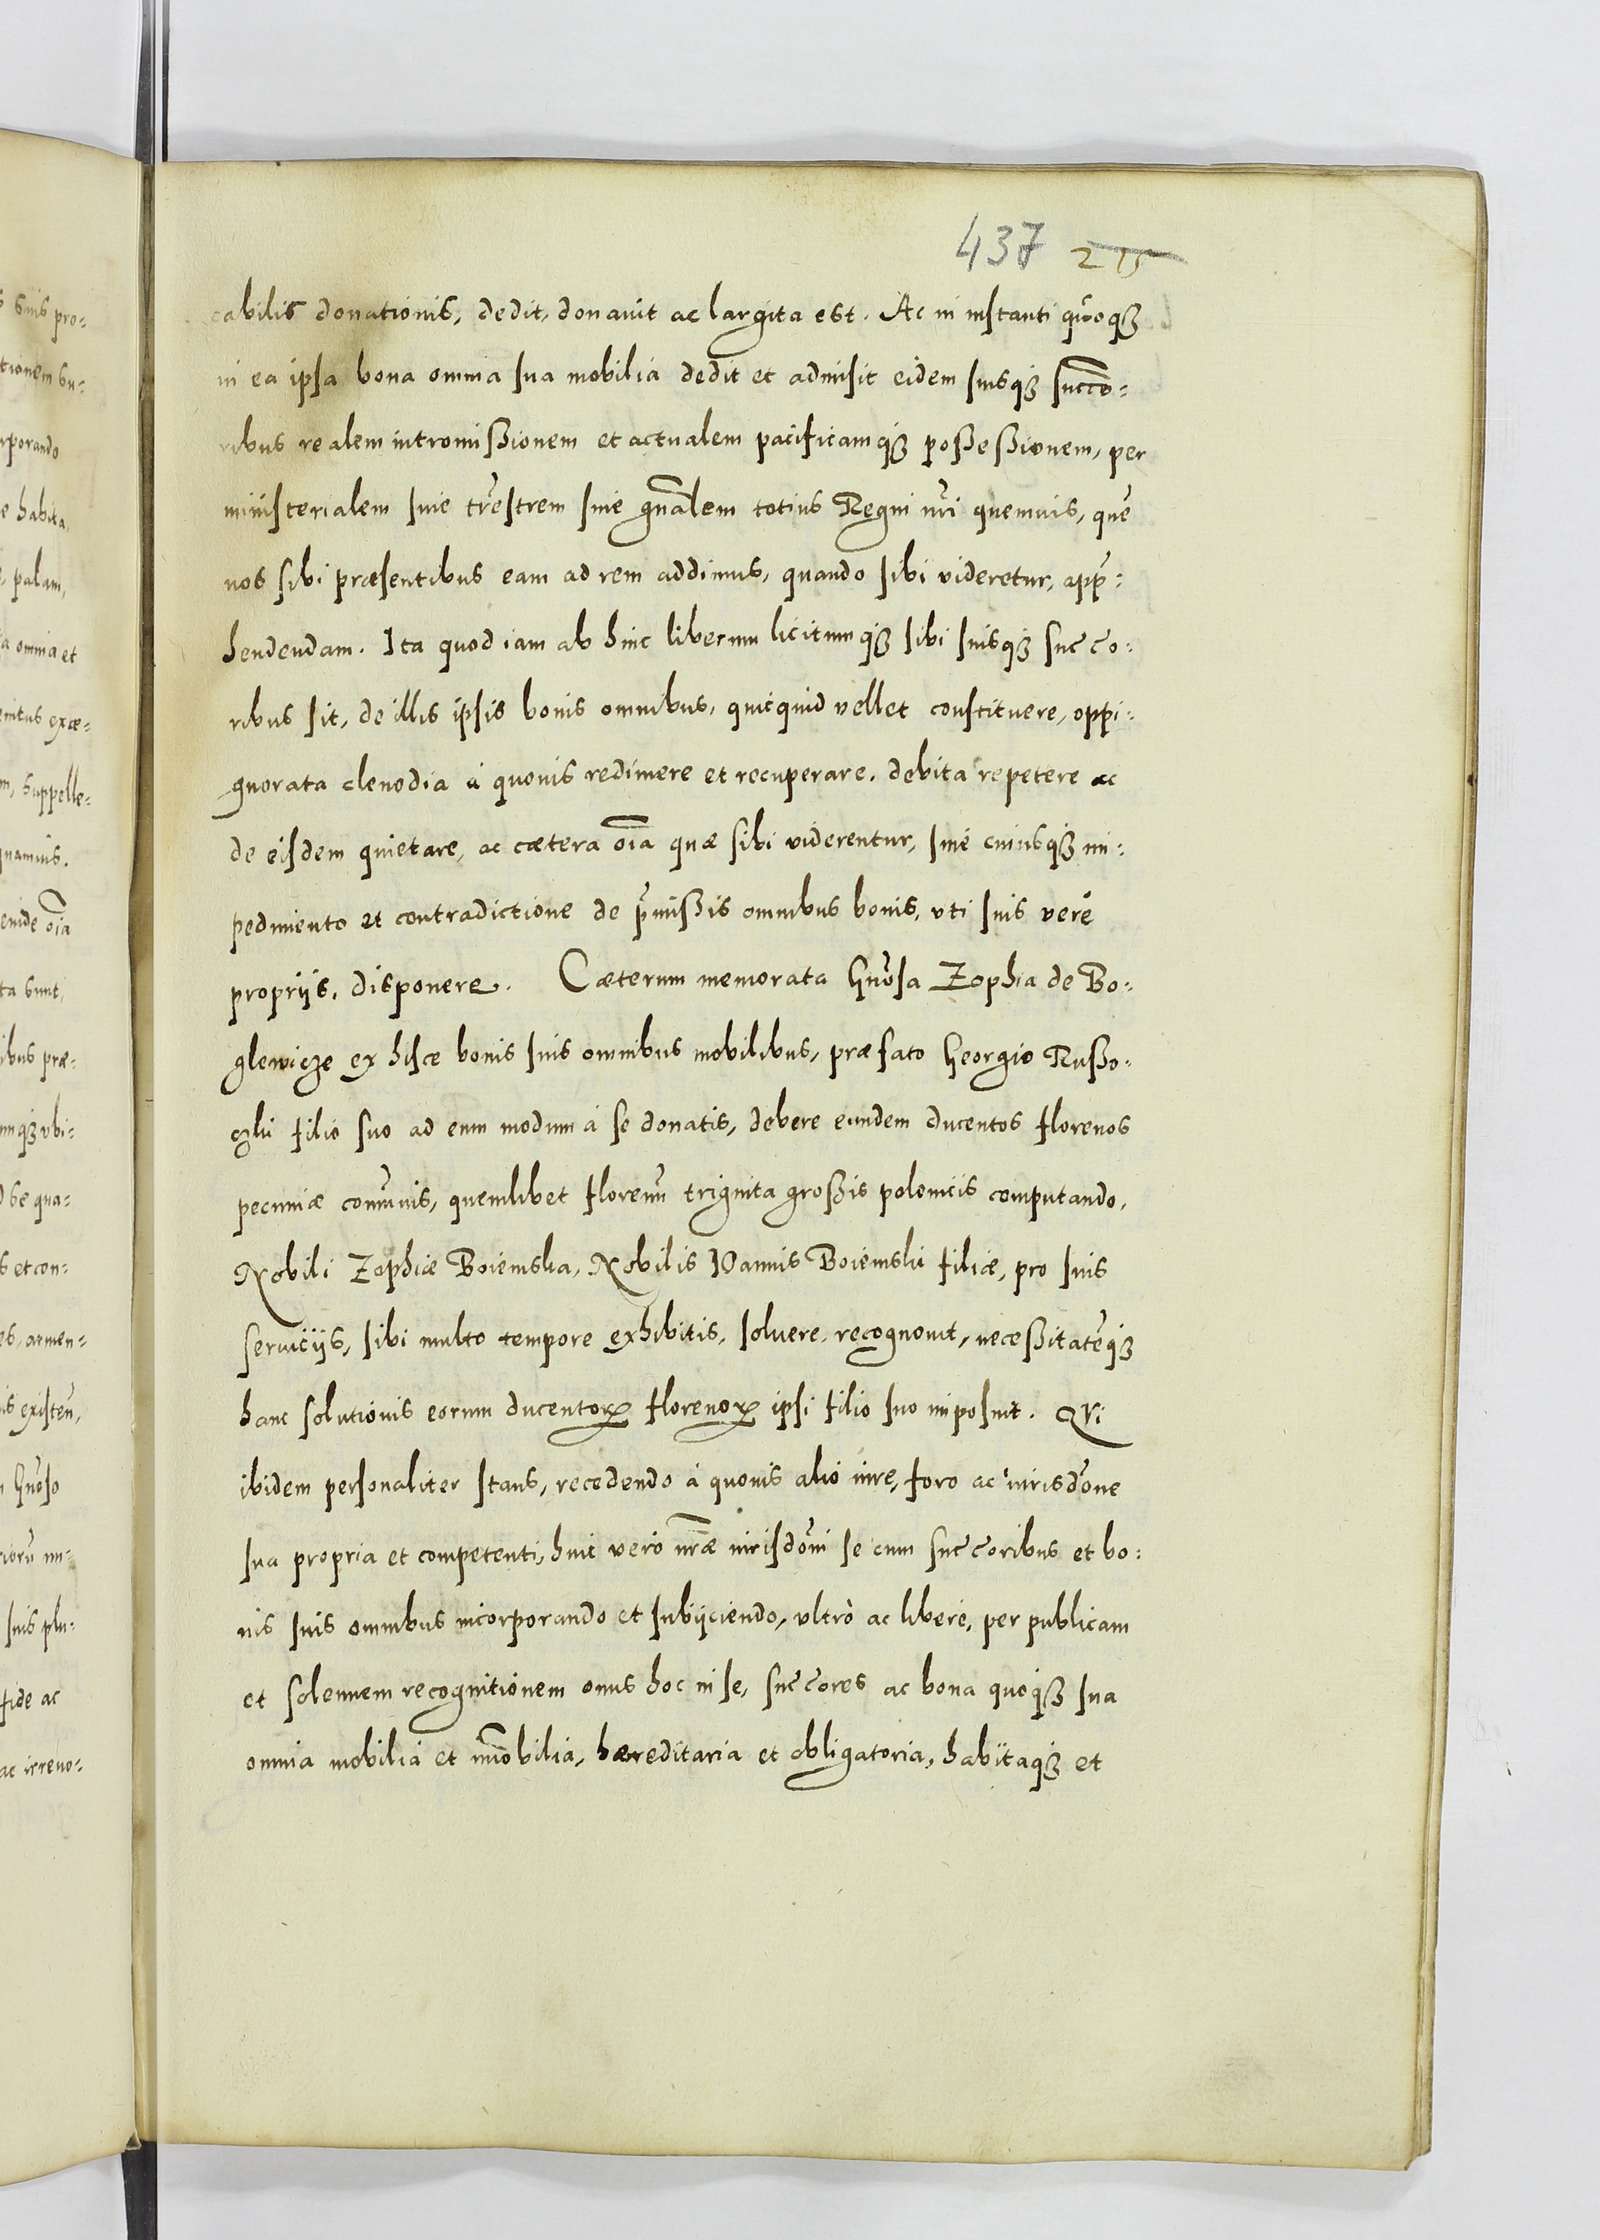 437 215
cabilis donationis, dedit, donauit ac largita est. Ac in instanti quoq́ꝫ
in ea ipsa bona omnia sua mobilia dedit et admisit eidem suisq́ꝫ succo=
ribus realem intromißionem et actualem pacificamq́ꝫ poßeßionem, per
ministerialem siue tr̃estrem siue gñalem totius Regni nr̃i quemuis, quẽ
nos sibi præsentibus eam ad rem addimus, quando sibi videretur, app̃=
hendendam. Ita quod iam ab hinc liberum licitumq́ꝫ sibi suisq́ꝫ succo=
ribus sit, de illis ipsis bonis omnibus, quicquid vellet constituere, oppi=
gnorata clenodia á quouis redimere et recuperare, debita repetere ac
de eisdem quietare, ac cætera oĩa quæ sibi viderentur, sine cuiusq́ꝫ im=
pedimento et contradictione de p̃mißis omnibus bonis, vti suis verè
propriis, disponere. Cæterum memorata Gñosa Zophia de Bo=
glewicze ex hisce bonis suis omnibus mobilibus, præfato Georgio Rußo=
czki filio suo ad eum modum á se donatis, debere eundem ducentos florenos
pecuniæ com̃unis, quemlibet florenũ triginta großis polonicis computando,
Nobili Zophiæ Boiemska, Nobilis Ioannis Boiemski filiæ, pro suis
seruiciis, sibi multo tempore exhibitis, soluere recognouit, neceßitatẽq́ꝫ
hanc solutionis eorum ducentoꝝ florenoꝝ ipsi filio suo imposuit. Qui
ibidem personaliter stans, recedendo á quouis alio iure, foro ac iurisdõne
sua propria et competenti, huic verò nr̃æ iurisdõni se cum succoribus et bo=
nis suis omnibus incorporando et subijciendo, vltrò ac liberè, per publicam
et solennem recognitionem onus hoc in se, succores ac bona quoq́ꝫ sua
omnia mobilia et im̃obilia, hæreditaria et obligatoria, habitaq́ꝫ et